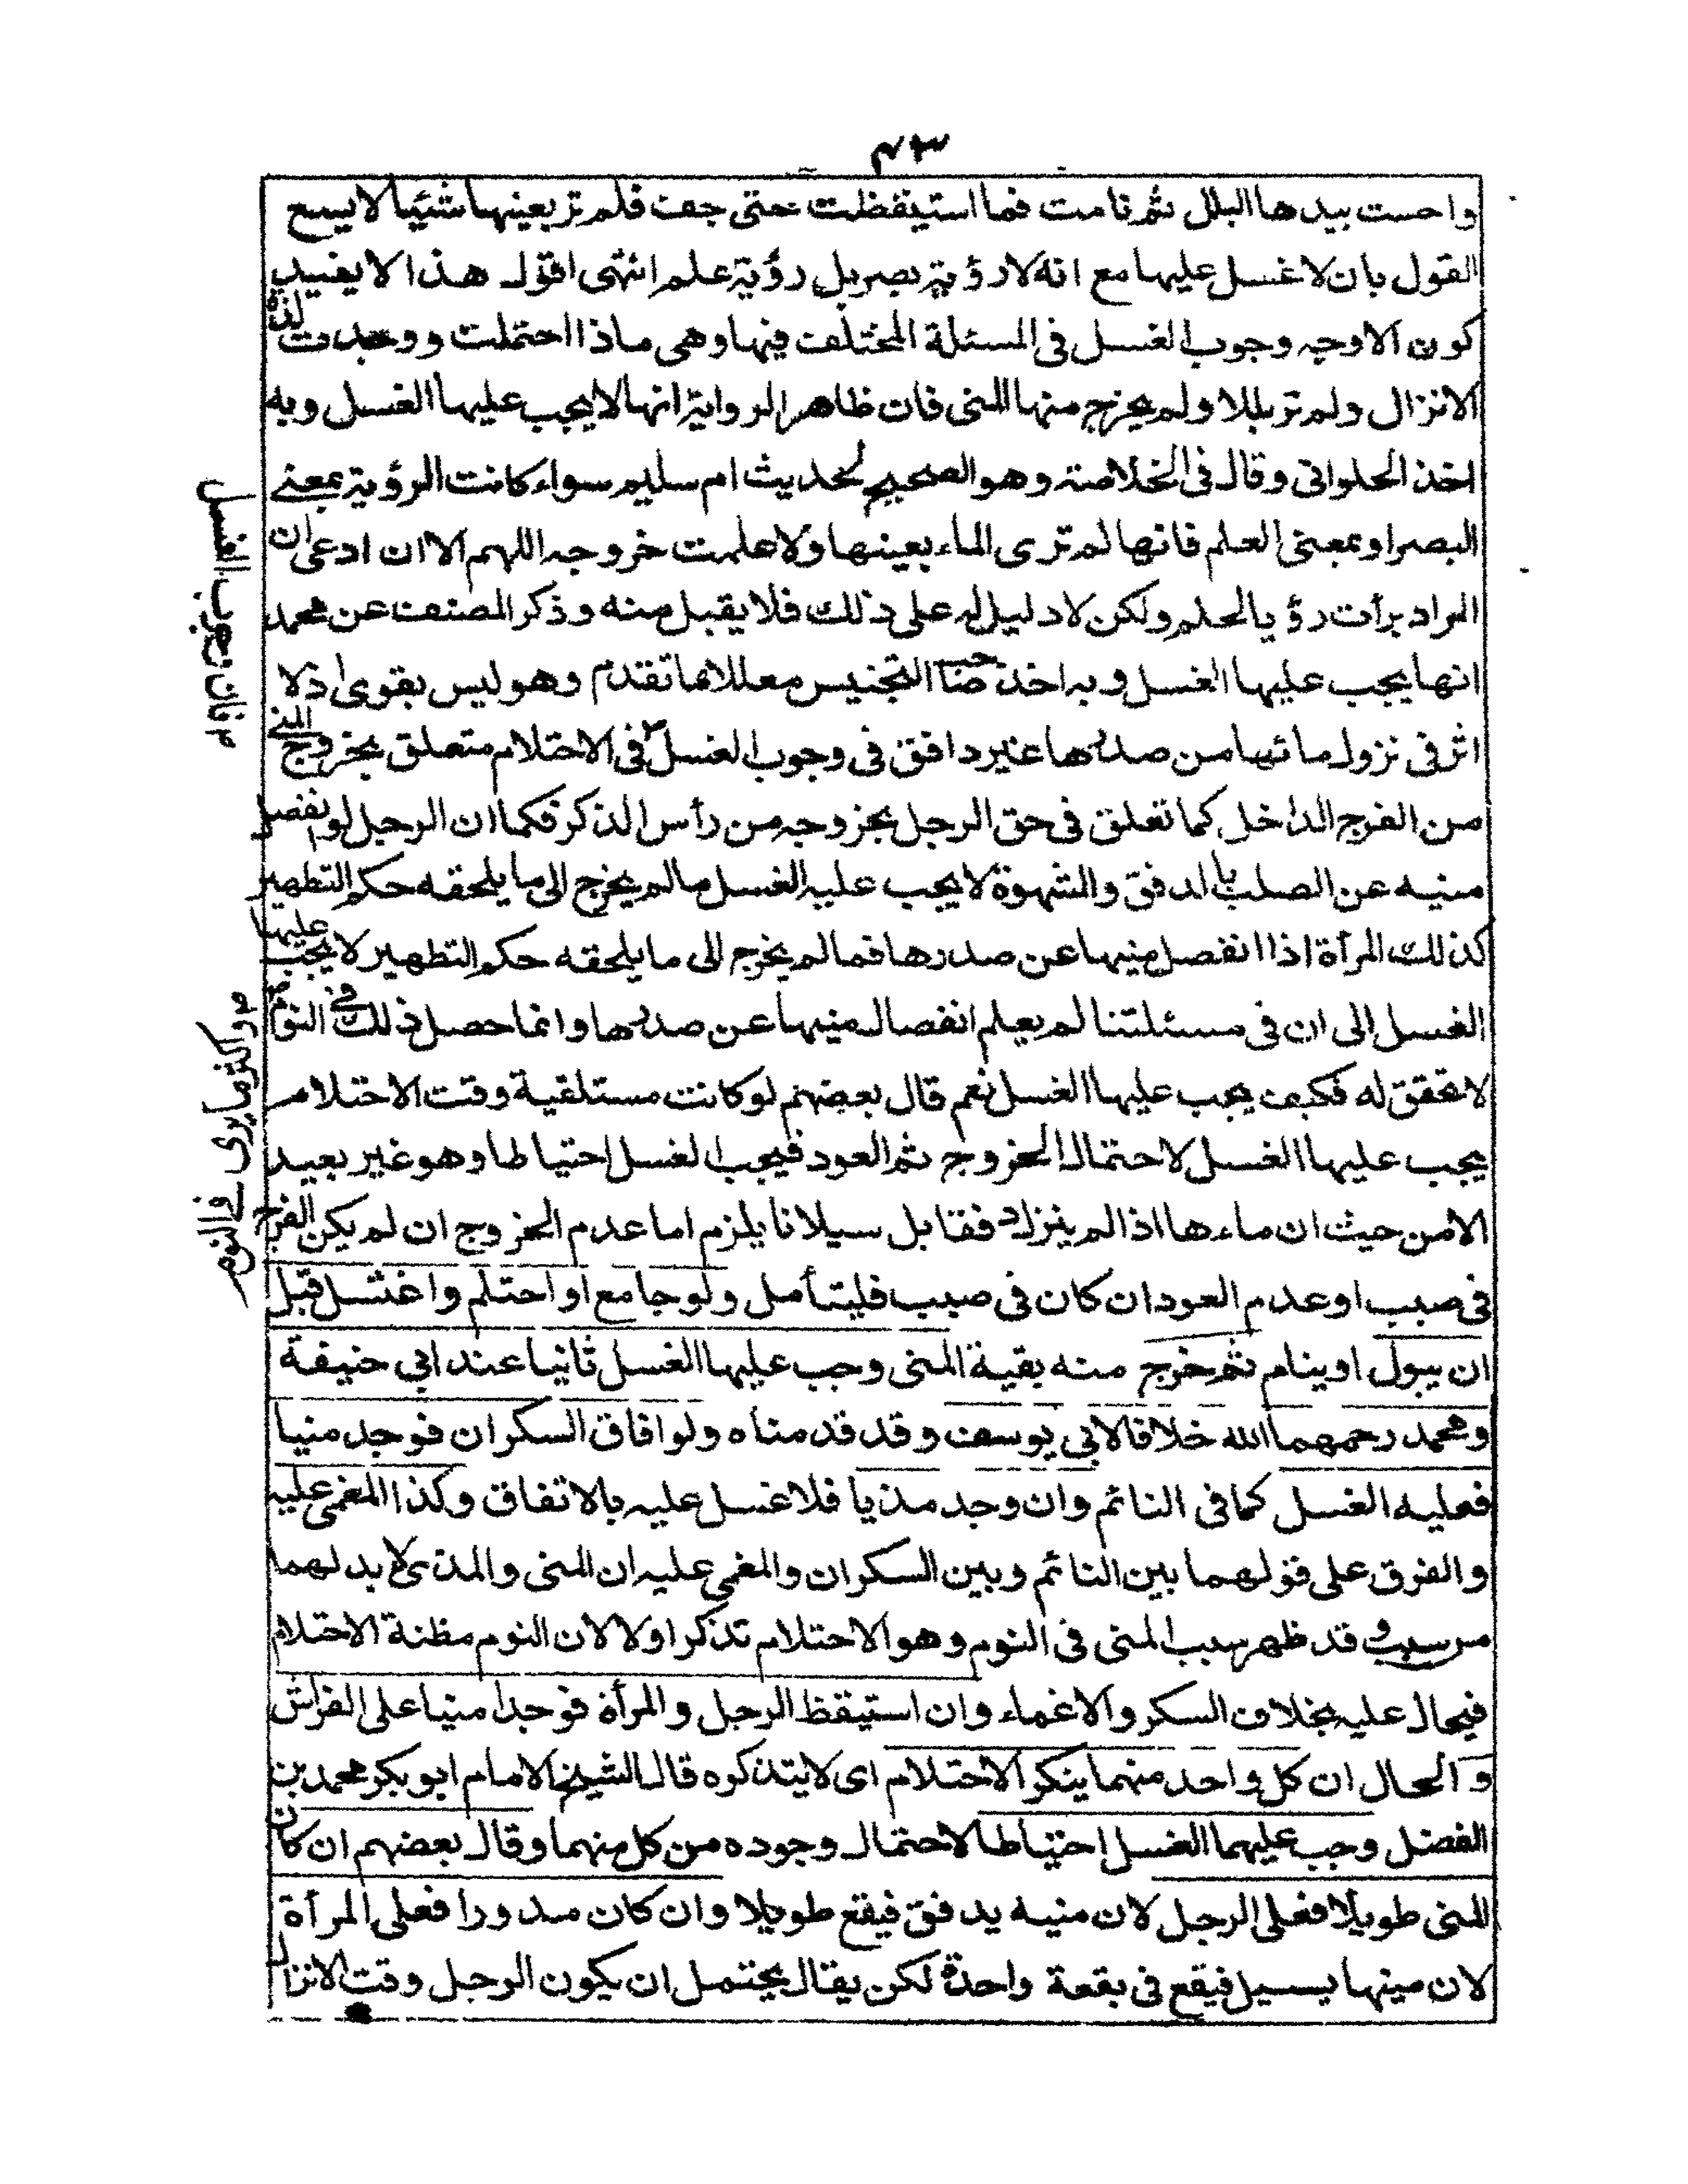 ٤٣
واحست بيدها البلل ثم نامت فما استيقظت حتى جف فلم تر بعينها شيئا لا يسع
القول بان لا غسل عليها مع انه لا رؤية بصر بل رؤية علم انتهى اقول هذا لا يفيد
كون الاوجه وجوب الغسل فى المسئلة المختلف فيها وهى ما اذا احتلمت ووجدت لذة
الانزال ولم تر بللا ولم يخرج منها المنى فان ظاهر الرواية انها لا يجب عليها الغسل وبه
اخذ الحلوانى وقال فى الخلاصة وهو الصحيح لحديث ام سليم سواء كانت الرؤية بمعنى
البصر او بمعنى العلم فانها لم ترى الماء بعينها ولا علمت خروجه اللهم الا ان ادعى ان
المراد برأت رؤيا الحلم ولكن لا دليل له على ذلك فلا يقبل منه وذكر المصنف عن محمد
انها يجب عليها الغسل وبه اخذ صاحب التجنيس معللا بما تقدم وهو ليس بقوى اذ لا
اثر فى نزول مائها من صدرها غير دافق فى وجوب الغسل فى الاحتلام متعلق بخروج المنى
من الفرج الداخل كما تعلق فى حق الرجل بخروجه من رأس الذكر فكما ان الرجل لو انفصل
منيه عن الصلب بالدفق والشهوة لا يجب عليه الغسل ما لم يخرج الى ما يلحقه حكم التطهير
كذلك المرأة اذا انفصل منيها عن صدرها فما لم يخرج الى ما يلحقه حكم التطهير لا يجب عليها
الغسل الى ان فى مسئلتنا لم يعلم انفصال منيها عن صدرها وانما حصل ذلك فى النوم
لا تحقق له فكيف يجب عليها الغسل نعم قال بعضهم لو كانت مستلقية وقت الاحتلام
يجب عليها الغسل لاحتمال الخروج ثم العود فيجب الغسل احتياطا وهو غير بعيد
الا من حيث ان ماءها اذا لم ينزل دفقا بل سيلانا يلزم اما عدم الخروج ان لم يكن الفرج
فى صبب او عدم العود ان كان فى صبب فليتأمل ولو جامع او احتلم واغتسل قبل
ان يبول او ينام ثم خرج منه بقية المنى وجب عليها الغسل ثانيا عند ابي حنيفة
ومحمد رحمهما الله خلافا لابي يوسف وقد قدمناه ولو افاق السكران فوجد منيا
فعليه الغسل كما فى النائم وان وجد مذيا فلا غسل عليه بالاتفاق وكذا المغمى عليه
والفرق على قولهما بين النائم وبين السكران والمغمى عليه ان المنى والمذى لا بد لهما
من سبب وقد ظهر سبب المنى فى النوم وهو الاحتلام تذكر او لا لان النوم مظنة الاحتلام
فيحال عليه بخلاف السكر والاغماء وان استيقظ الرجل والمرأة فوجدا منيا على الفراش
و الحال ان كل واحد منهما ينكر الاحتلام اى لا يتذكره قال الشيخ الامام ابو بكر محمد بن
الفضل وجب عليهما الغسل احتياطا لاحتمال وجوده من كل منهما وقال بعضهم ان كان
المنى طويلا فعلى الرجل لان منيه يدفق فيقع طويلا وان كان مدورا فعلى المرأة
لان مينها يسيل فيقع فى بقعة واحدة لكن يقال يحتمل ان يكون الرجل وقت الانزال
فان وجوب الغسل
واكثر ما يرى فى النوم